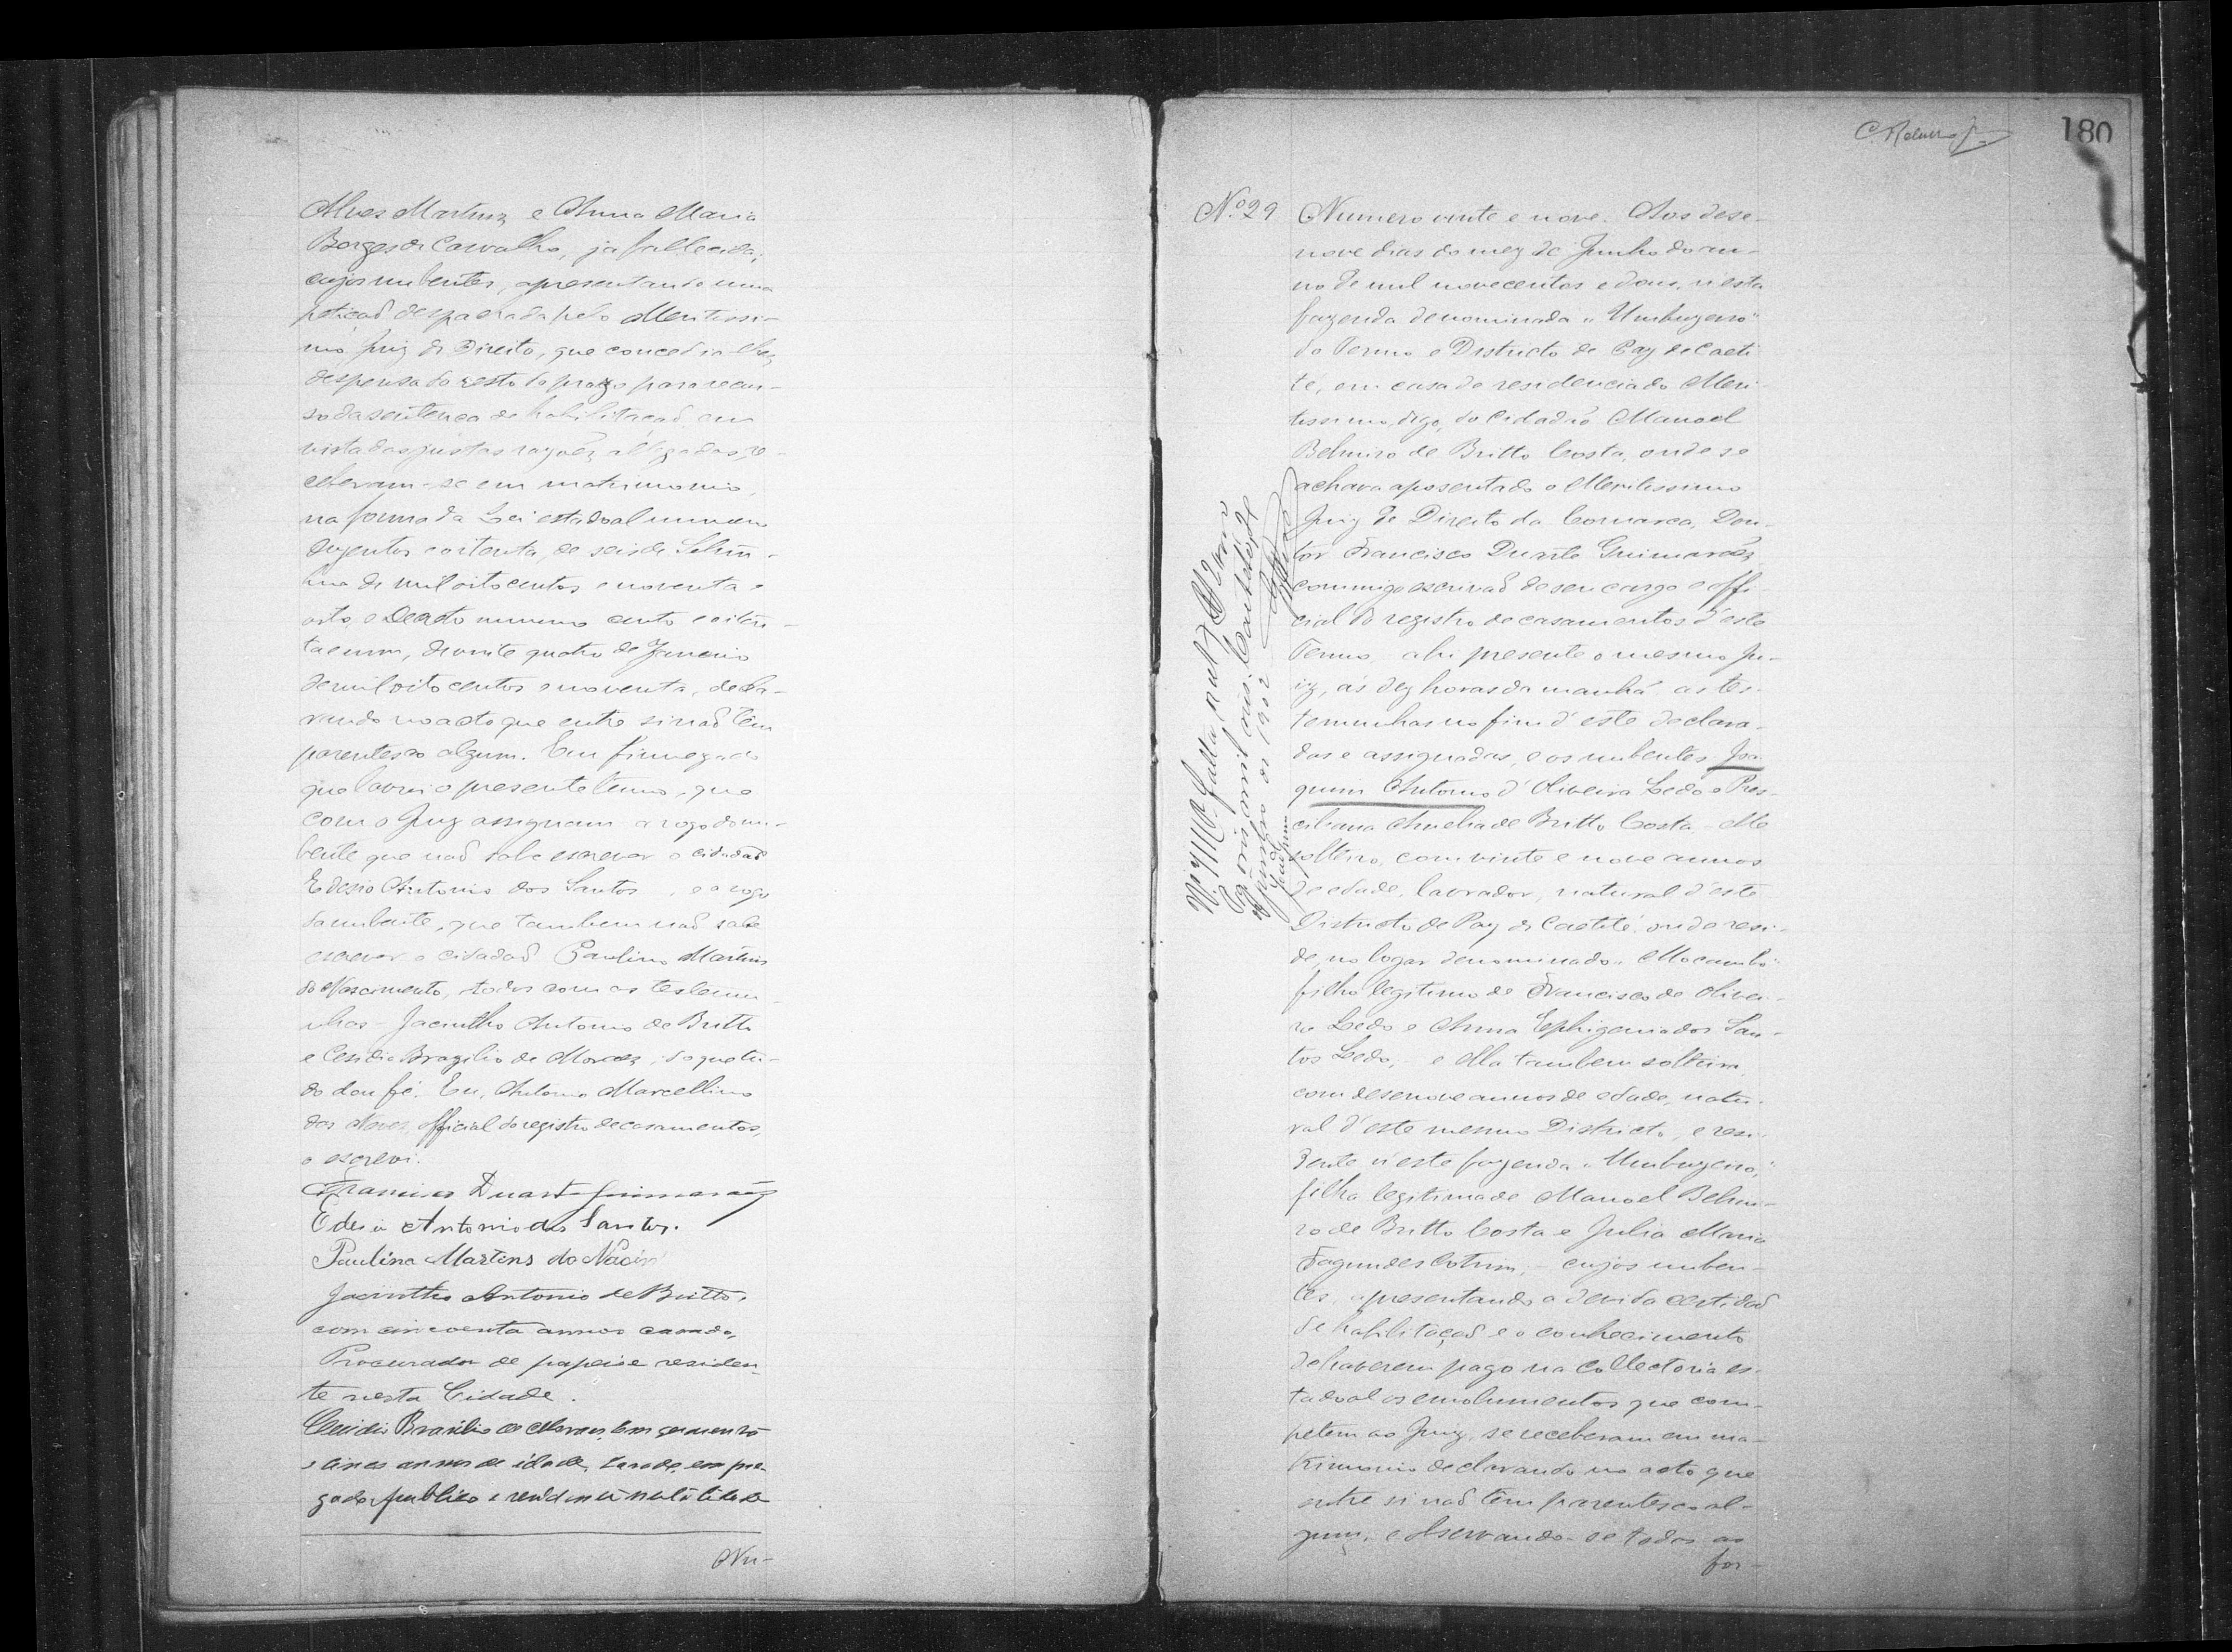 Alves Martins, e Anna Maria
Borges de Carvalho, já fallecida;
cujos nubentes, apresentando uma
petiçaõ despachada pelo Meritissi-
mo Juiz de Direito, que concedia-lhes
despensa do resto do prazo para recur-
so da sentença de habilitaçaõ em
vista das justas razoẽs allegadas, re-
ceberam-se em matrimonio,
na forma da Lei estadoal numero
duzentos e oitenta, de seis de Setem-
bro de mil oitocentos e noventa e
oito, e Decreto numero cento e oiten-
ta e um, de vinte quatro de Janeiro
de mil oito centos e noventa, decla-
rando no acto que entre si naõ têm
parentesco algum. Em firmeza do
que lavrei o presente termo, que
com o Juiz assignam a rogo do nu-
bente que naõ sabe escrever o cidadaõ
Edesio Antonio dos Santos, e a rogo
da nubente, que tambem naõ sabe
escrever o cidadaõ Paulino Martins
do Nascimento, todos com as testemu-
nhas - Jacintho Antonio de Britto
e Cesidio Brazilio de Moraes; do que tu-
do dou fé. Eu, Antonio Marcellino
das Neves, official do registro de casamentos,
o escrevi.
Francisco Duarte Guimarães
Edesio Antonio dos Santos.
Paulino Martins do Nasci
Jacintho Antonio de Britto,
com cincoenta annos casado,
Procurador de papeis e residen-
te nesta Cidade.
Cesidio Brasilio de Moraes, com
e cinco annos de idade, casado, empre-
gado publico e residente nesta Cidade
Nu-
180
Nº 29
Numero vinte e nove. Aos dese-
nove dias do mez de Junho do an-
no de mil novecentos e dous, n'esta
fazenda denominada "Umbuzeiro"
do Termo e Districto de Paz de Caeti
té, em casa de residencia do Meri-
tissimo, digo, do Cidadão Manoel
Belmiro de Britto Costa, onde se
achava aposentado o Meritissimo
Juiz de Direito da Comarca, Dou-
tor Francisco Duarte Guimarães,
commigo escrivaõ de seu cargo e offi-
cial do registro de casamentos d'este
Termo, ahi presente o mesmo Ju-
iz, ás dez horas da manhã, as tes-
temunhas no fim d'este declara-
das e assignadas, e os nubentes Joa-
quim Antonio d'Oliveira Ledo e Pres-
ciliana Amelia de Britto Costa - elle
solteiro, com vinte e nove annos
de edade, lavrador, natural d'este
Districto de Paz de Caetité, onde resi-
de, no logar denominado "Mocambo"
filho legitimo de Francisco de Olivei-
ra Ledo e Anna Ephigenia dos San-
tos Ledo, - e ella tambem solteira,
com desenove annos de edade, natu-
ral d'este mesmo Districto, e resi-
dente n'esta fazenda "Umbuzeiro,"
filha legitima de Manoel Belmi-
ro de Britto Costa e Julia Maria
Fagundes Cotrim; - cujos nuben-
tes, apresentando a devida certidaõ
de habilitaçaõ e o conhecimento
de haverem pago na Collectoria es-
tadoal os emolumentos que com-
petem ao Juiz, se receberam em ma-
trimonio declarando no acto que
entre si naõ têm parentesco al-
gum, e observando-se todas as
for-